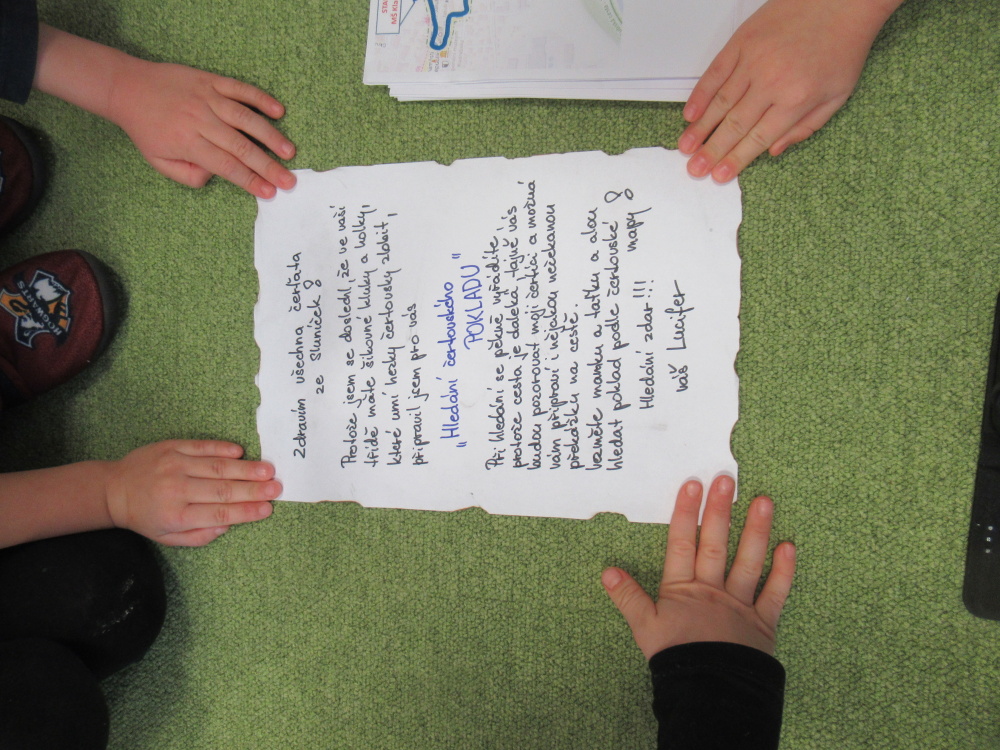 Zdravím všechna čerťata
ze Sluníček
Protože jsem se doslechl, že ve vaší
třídě máte šikovné kluky a holky,
které umí hezky čertovsky zlobit,
připravil jsem pro vás
„Hledání čertovského
POKLADU"
Při hledání se pěkně vyřádíte,
protože cesta je daleká, tajně vás
budou pozorovat moji čertíci a možná
vám připraví i nějakou nečekanou
překážku na cestě.
Vezměte mamku a taťku a alou
hledat poklad podle čertovské
mapy
Hledání zdar!!!
váš Lucifer
STA
MŠ Kla
HOGWARTS